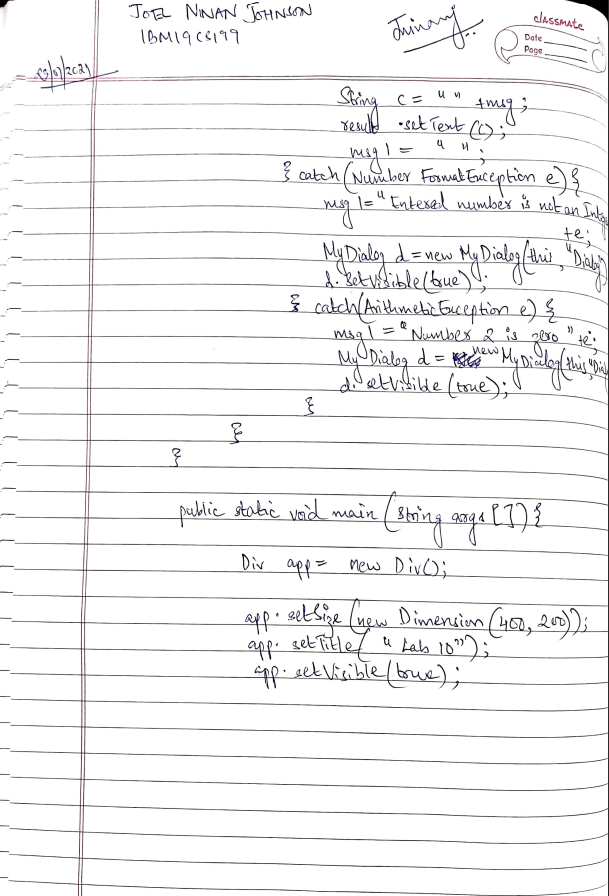 JOEL NINAN JOHNSON
1BM19CS199
classmate
Date
Page
String c = " " +msg;
result .setText(c);
msg1 = " ";
} catch (Number FormatException e) {
msg1= "Entered number is not an Inte
+e;
MyDialog d = new MyDialog(this, "Dialog
d.setVisible(true);
} catch(ArithmeticException e) {
msg1 = "Number 2 is zero" +e;
My Dialog d = new MyDialog(this, "Dial
d.setVisible (true);
}
}
}
public static void main (String args []) {
Div app = new Div();
app.setSize (new Dimension (400, 200));
app.setTitle( "Lab 10");
app.setVisible(true);